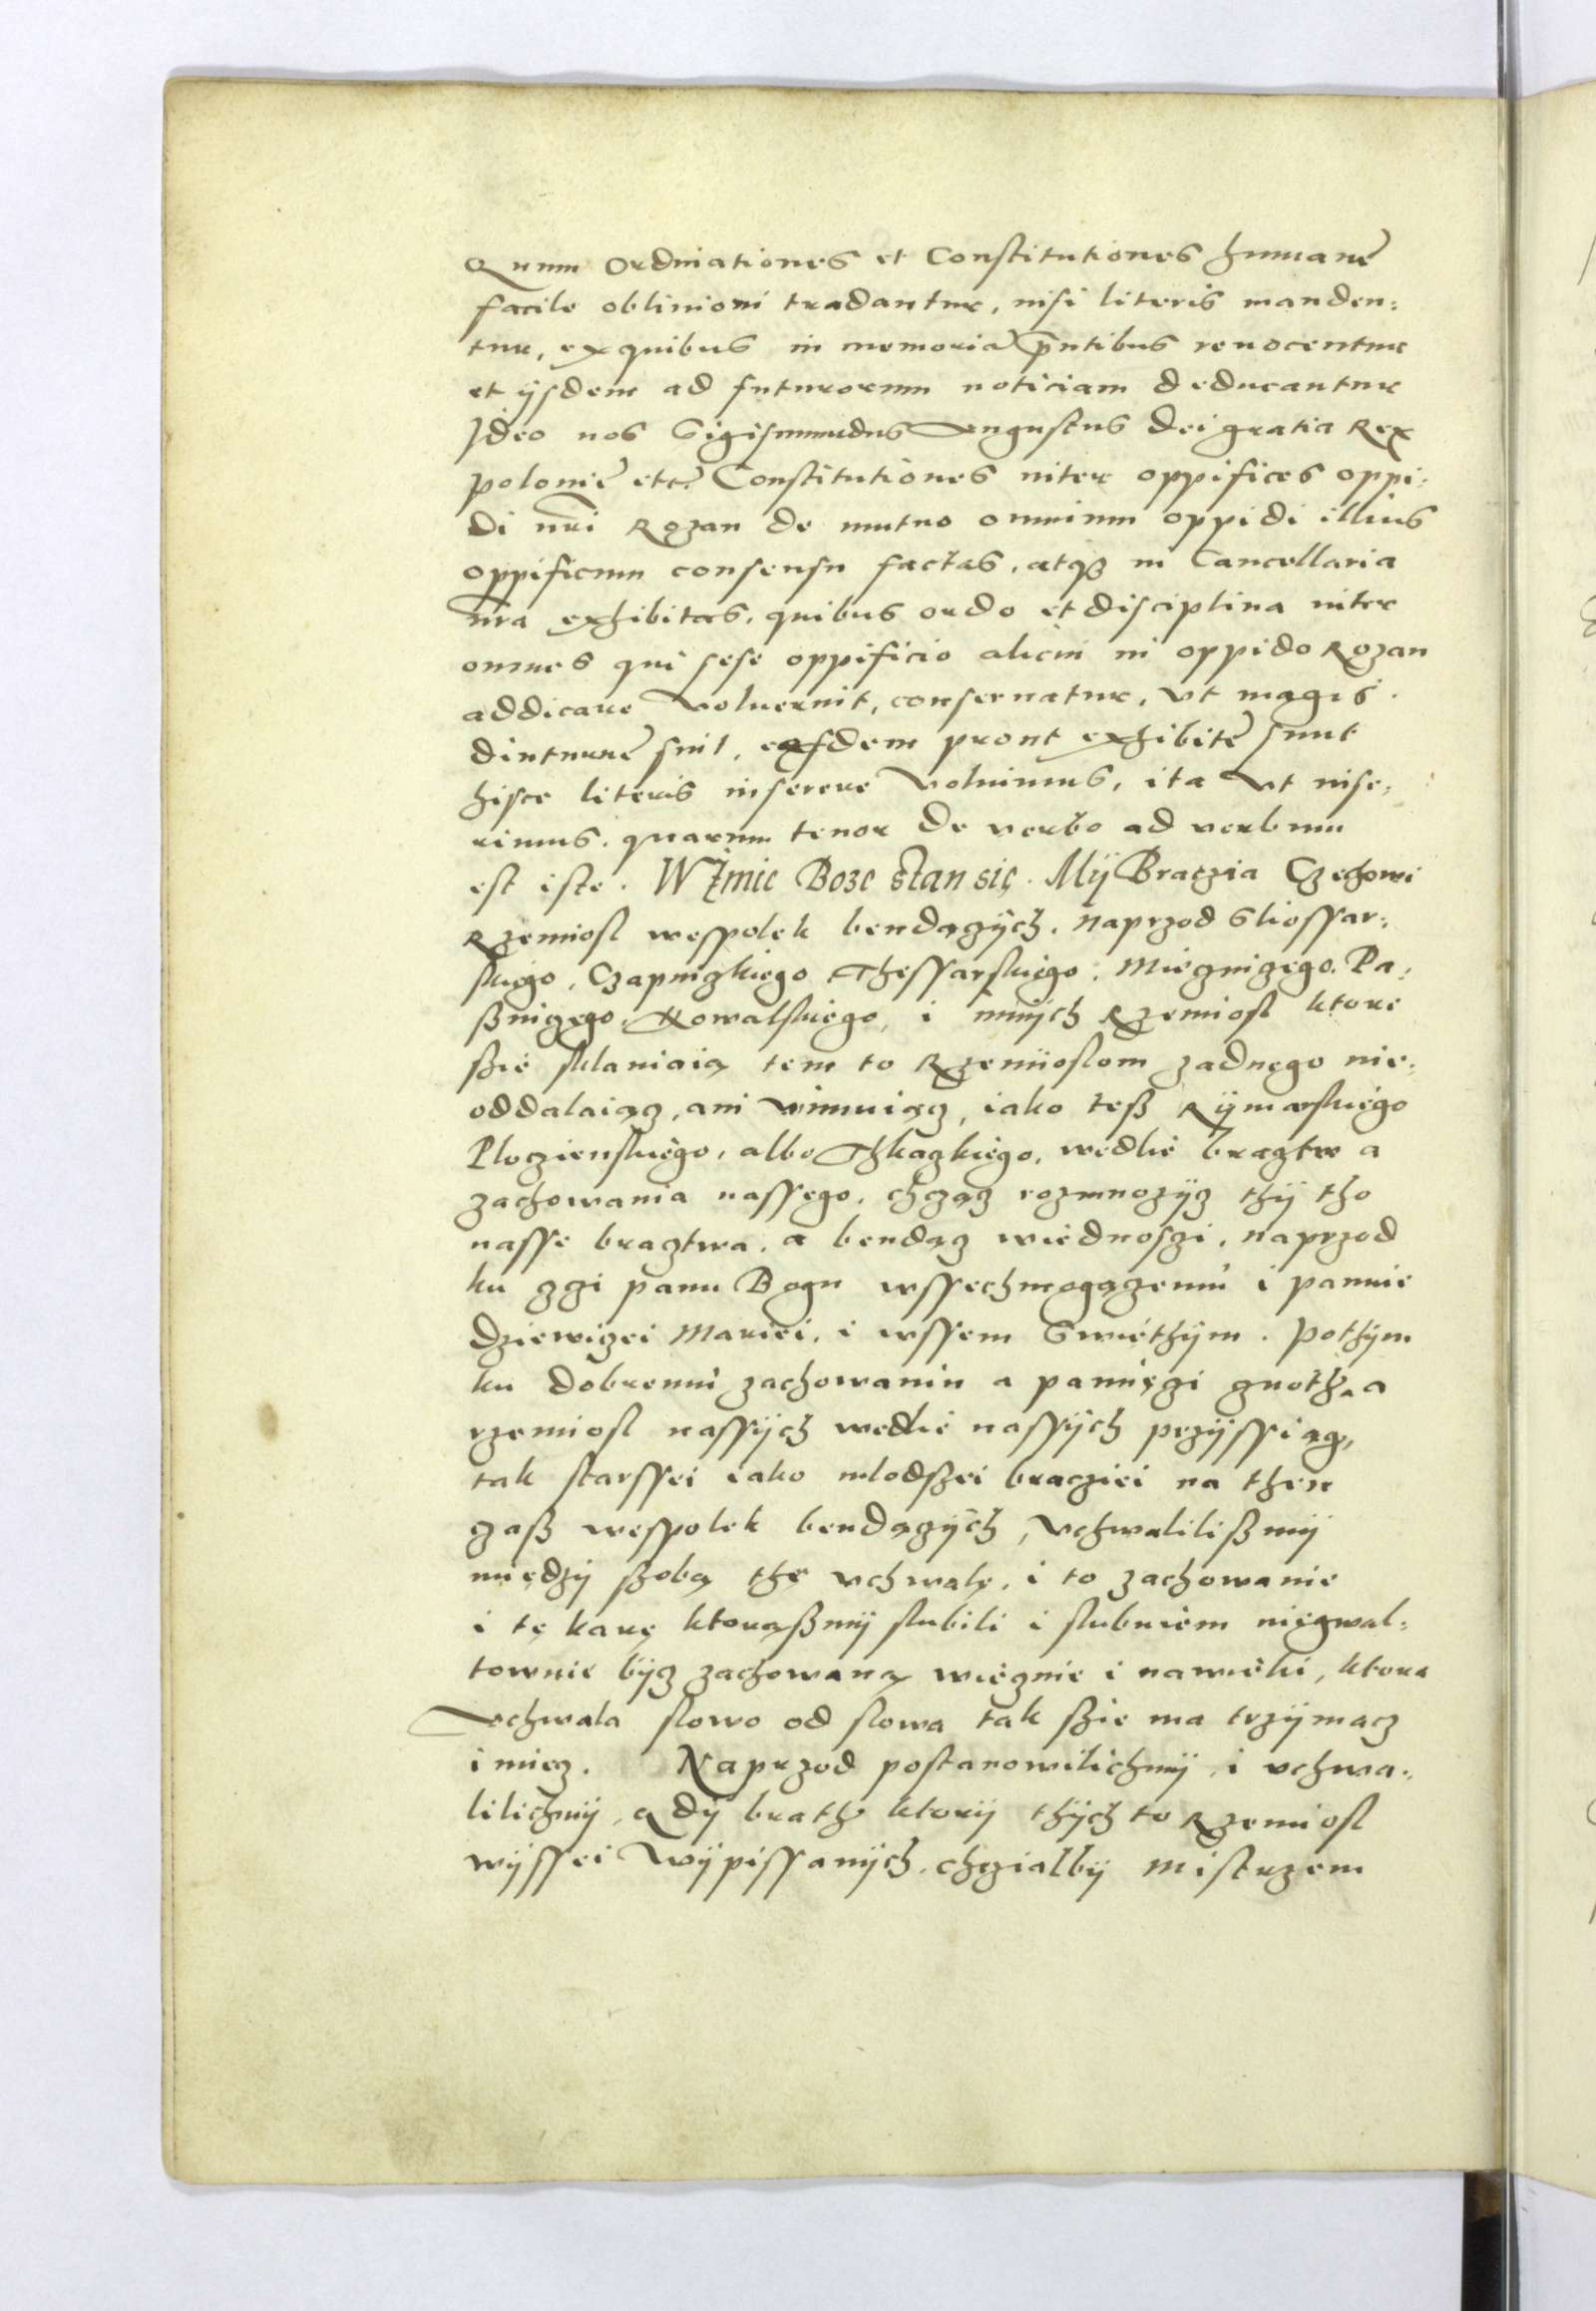 Quum Ordinationes et Constitutiones humanę
facile obliuioni tradantur, nisi literis manden:
tur, ex quibus in memoriã pñtibus reuocentur
et ijsdem ad futurorum noticiam deducantur
Ideo nos Sigismundus Augustus Dei gratia Rex
polonię etc. Constitutiones inter oppifices oppi:
di nr̃i Rozan de mutuo omnium oppidi illius
oppificum consensu factas, atqȝ in Cancellaria
nr̃a exhibitas, quibus ordo et disciplina inter
omnes qui sese oppificio alicui in oppido Rozan
addicare voluerint, conseruatur, vt magis
diuturnę sint, easdem prout exhibitę sunt
hisce literis inserere voluimus, ita vt inse:
rimus. quarum tenor de verbo ad verbum
est iste. W Imie Boze stan się. Mÿ Braczia Czechowi
Rzemiosl wespolek bendączÿch. naprzod Sliossar:
skiego, Czapniczkiego Thessarskiego, Mieczniczego, Pa:
ßniczego, Kowalskiego, i innÿch Rzemiosl ktore
szie sklaniaią tem to Rzemiioslom zadnego nie:
oddalaiącz, ani vimuiącz, iako teß Rÿmarskiego
Ploczienskiego, albo Thkaczkiego, wedlie bracztw a
zachowania nassego, chcącz rozmnozÿcz thÿ tho
nasse bracztwa, a bendącz wiednosczi, naprzod
ku czci panu Bogu wssechmogączemu i pannie
dziewiczei Mariei, i wssem Swiethÿm. pothÿm
ku dobremu zachowaniu a pamięczi cznoth, a
rzemiosl nassÿch wedlie nassÿch przÿssiąg,
tak starssei iako mlodszei bracziei na then
czaß wespolek bendączÿch, vchwalilißmÿ
międzÿ szobą thę vchwalę, i to zachowanie
i tę karę ktoraßmÿ slubili i slubuiem niegwal:
townie bÿcz zachowaną wiecznie i nawieki, ktora
vchwala slowo od slowa tak szie ma trzÿmacz
i miecz. Naprzod postanowilichmÿ, i vchwa:
lilichmÿ, Gdÿ brath ktorÿ thÿch to Rzemiosl
wÿssei wÿpissanÿch, chczialbÿ Mistrzem